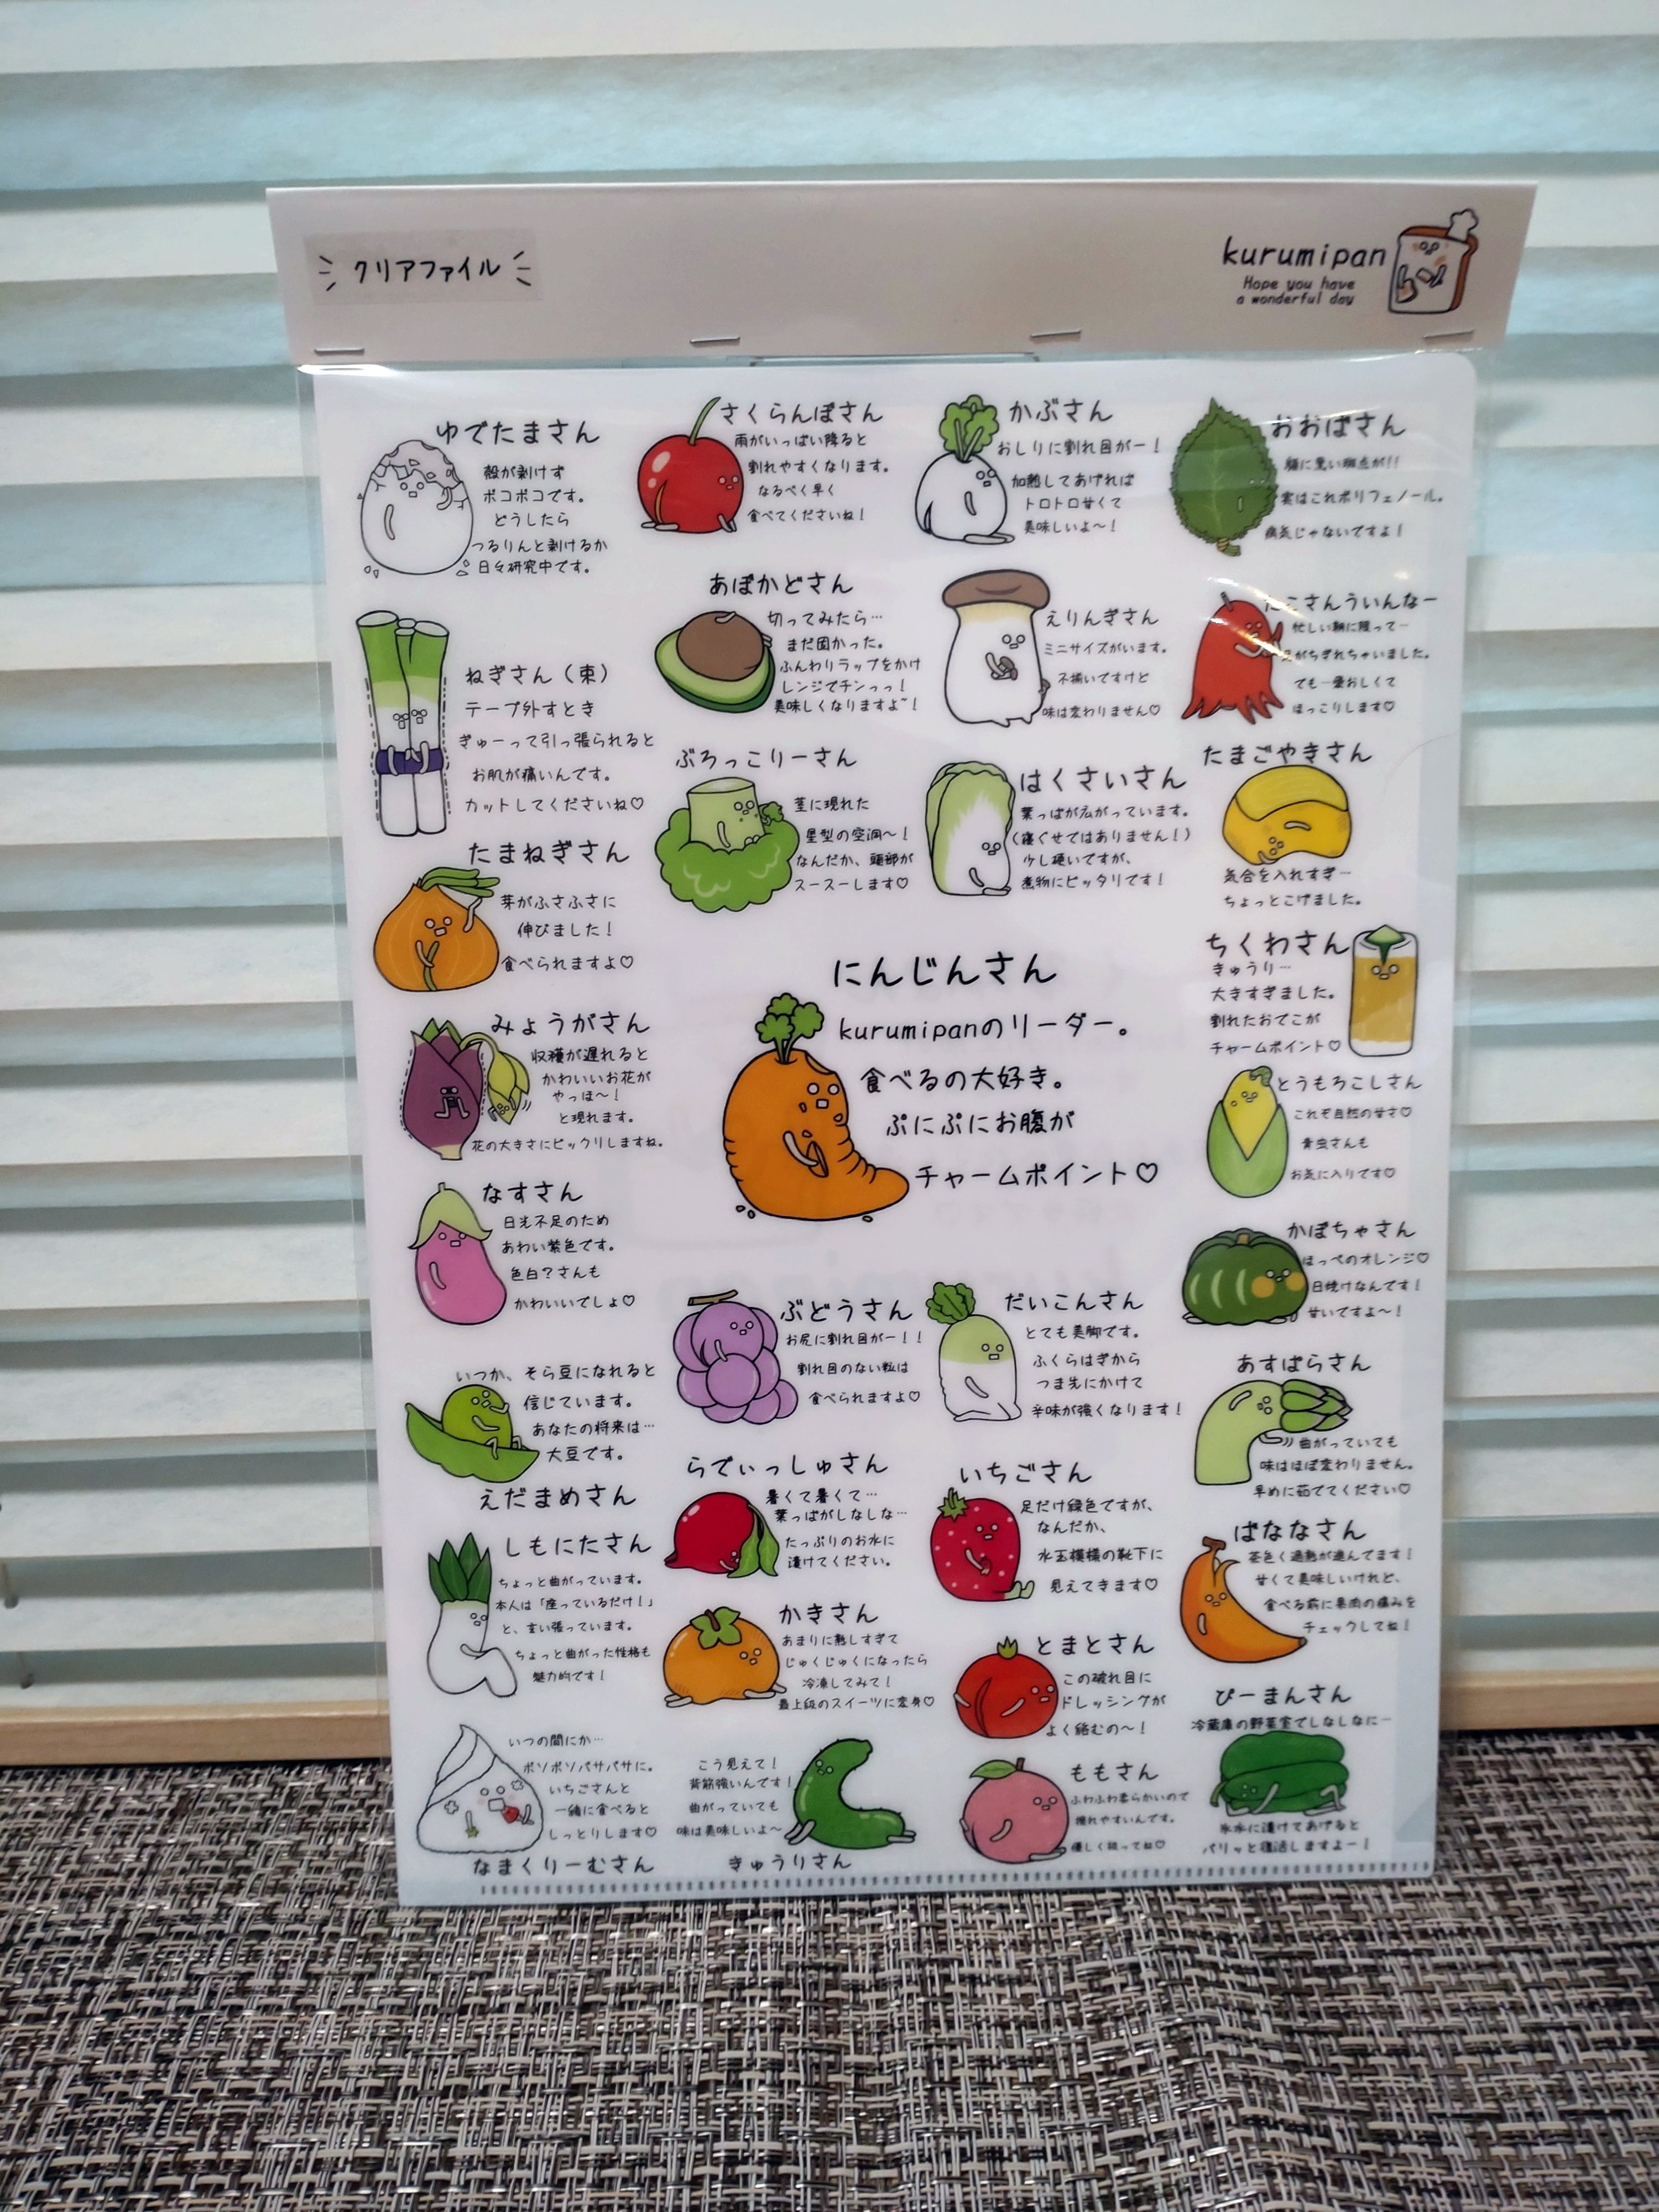 クリアファイル
kurumipan
Hope you have
a wonderful day
ゆでたまさん
殻が剥けず
ボコボコです。
どうしたら
つるりんと剥けるか
日々研究中です。
さくらんぼさん
雨がいっぱい降ると
割れやすくなります。
なるべく早く
食べてくださいね！
かぶさん
おしりに割れ目がー！
加熱してあげれば
トロトロ甘くて
美味しいよ〜！
おおばさん
脇に黒い斑点が!!
実はこれポリフェノール。
病気じゃないですよ！
ねぎさん（束）
テープ外すとき
ぎゅーって引っ張られると
お肌が痛いんです。
カットしてくださいね♡
あぼかどさん
切ってみたら…
まだ固かった。
ふんわりラップをかけ
レンジでチンっっ！
美味しくなりますよ~！
えりんぎさん
ミニサイズがいます。
不揃いですけど
味は変わりません♡
たこさんういんなー
忙しい朝に限って…
足がちぎれちゃいました。
でも一番おしくて
ほっこりします♡
ぶろっこりーさん
茎に現れた
星型の空洞〜！
なんだか、頭部が
スースーします♡
はくさいさん
葉っぱが広がっています。
（寝ぐせではありません！）
少し硬いですが、
煮物にピッタリです！
たまごやきさん
気合を入れすぎ…
ちょっとこげました。
たまねぎさん
芽がふさふさに
伸びました！
食べられますよ♡
ちくわさん
きゅうり…
大きすぎました。
割れたおでこが
チャームポイント♡
にんじんさん
kurumipanのリーダー。
食べるの大好き。
ぷにぷにお腹が
チャームポイント♡
みょうがさん
収穫が遅れると
かわいいお花が
やっほ〜！
と現れます。
花の大きさにビックリしますね。
とうもろこしさん
これぞ自然の甘さ♡
青虫さんも
お気に入りです♡
なすさん
日光不足のため
あわい紫色です。
色白？さんも
かわいいでしょ♡
かぼちゃさん
ほっぺのオレンジ♡
日焼けなんです！
甘いですよ〜！
ぶどうさん
お尻に割れ目がー！！
割れ目のない粒は
食べられますよ♡
だいこんさん
とても美脚です。
ふくらはぎから
つま先にかけて
辛味が強くなります！
あすぱらさん
曲がっていても
味はほぼ変わりません。
早めに茹でてください♡
いつか、そら豆になれると
信じています。
あなたの将来は…
大豆です。
えだまめさん
らでぃっしゅさん
暑くて暑くて…
葉っぱがしなしな…
たっぷりのお水に
漬けてください。
いちごさん
足だけ緑色ですが、
なんだか、
水玉模様の靴下に
見えてきます♡
ばななさん
茶色く過熟が進んでます！
甘くて美味しいけれど、
食べる前に果肉の痛みを
チェックしてね！
しもにたさん
ちょっと曲がっています。
本人は「座っているだけ！」
と、言い張っています。
ちょっと曲がった性格も
魅力的です！
かきさん
あまりに熟しすぎて
じゅくじゅくになったら
冷凍してみて！
最上級のスイーツに変身♡
とまとさん
この破れ目に
ドレッシングが
よく絡むの〜！
ぴーまんさん
冷蔵庫の野菜室でしなしなに…
氷水に漬けてあげると
パリッと復活しますよー！
いつの間にか…
ボソボソパサパサに。
いちごさんと
一緒に食べると
しっとりします♡
なまくりーむさん
こう見えて！
背筋強いんです！
曲がっていても
味は美味しいよ〜
きゅうりさん
ももさん
ふわふわ柔らかいので
擦れやすいんです。
優しく扱ってね♡